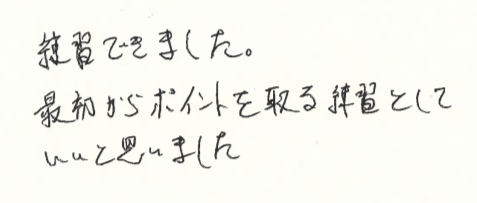 練習できました。
最初からポイントを取る練習として
いいと思いました